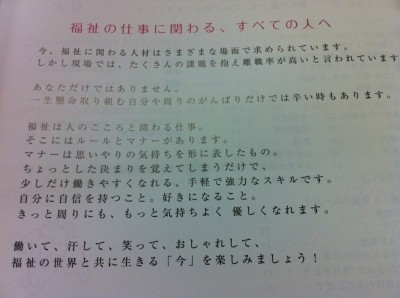 福祉の仕事に関わる、すべての人へ
今、福祉に関わる人材はさまざまな場面で求められています。
しかし現場では、たくさんの課題を抱え離職率が高いと言われています
あなただけではありません。
一生懸命取り組む自分や周りのがんばりだけでは辛い時もあります。
福祉は人のこころと関わる仕事。
そこにはルールとマナーがあります。
マナーは思いやりの気持ちを形に表したもの。
ちょっとした決まりを覚えてしまうだけで、
少しだけ働きやすくなれる、手軽で強力なスキルです。
自分に自信を持つこと。好きになること。
きっと周りにも、もっと気持ちよく 優しくなれます。
働いて、汗して、笑って、おしゃれして、
福祉の世界と共に生きる「今」を楽しみましょう！